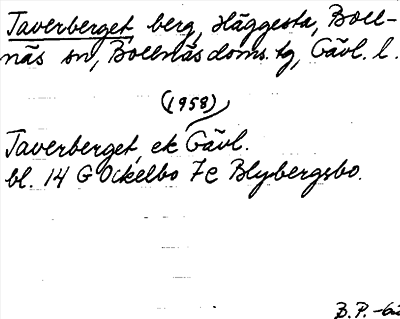 Taverberget, berg, Häggesta, Boll-
näs sn, Bollnäs doms. tg, Gävl. l.
(1958)
Taverberget, ek Gävl.
bl. 14 G Ockelbo 7c Blybergsbo.
B.P. -60